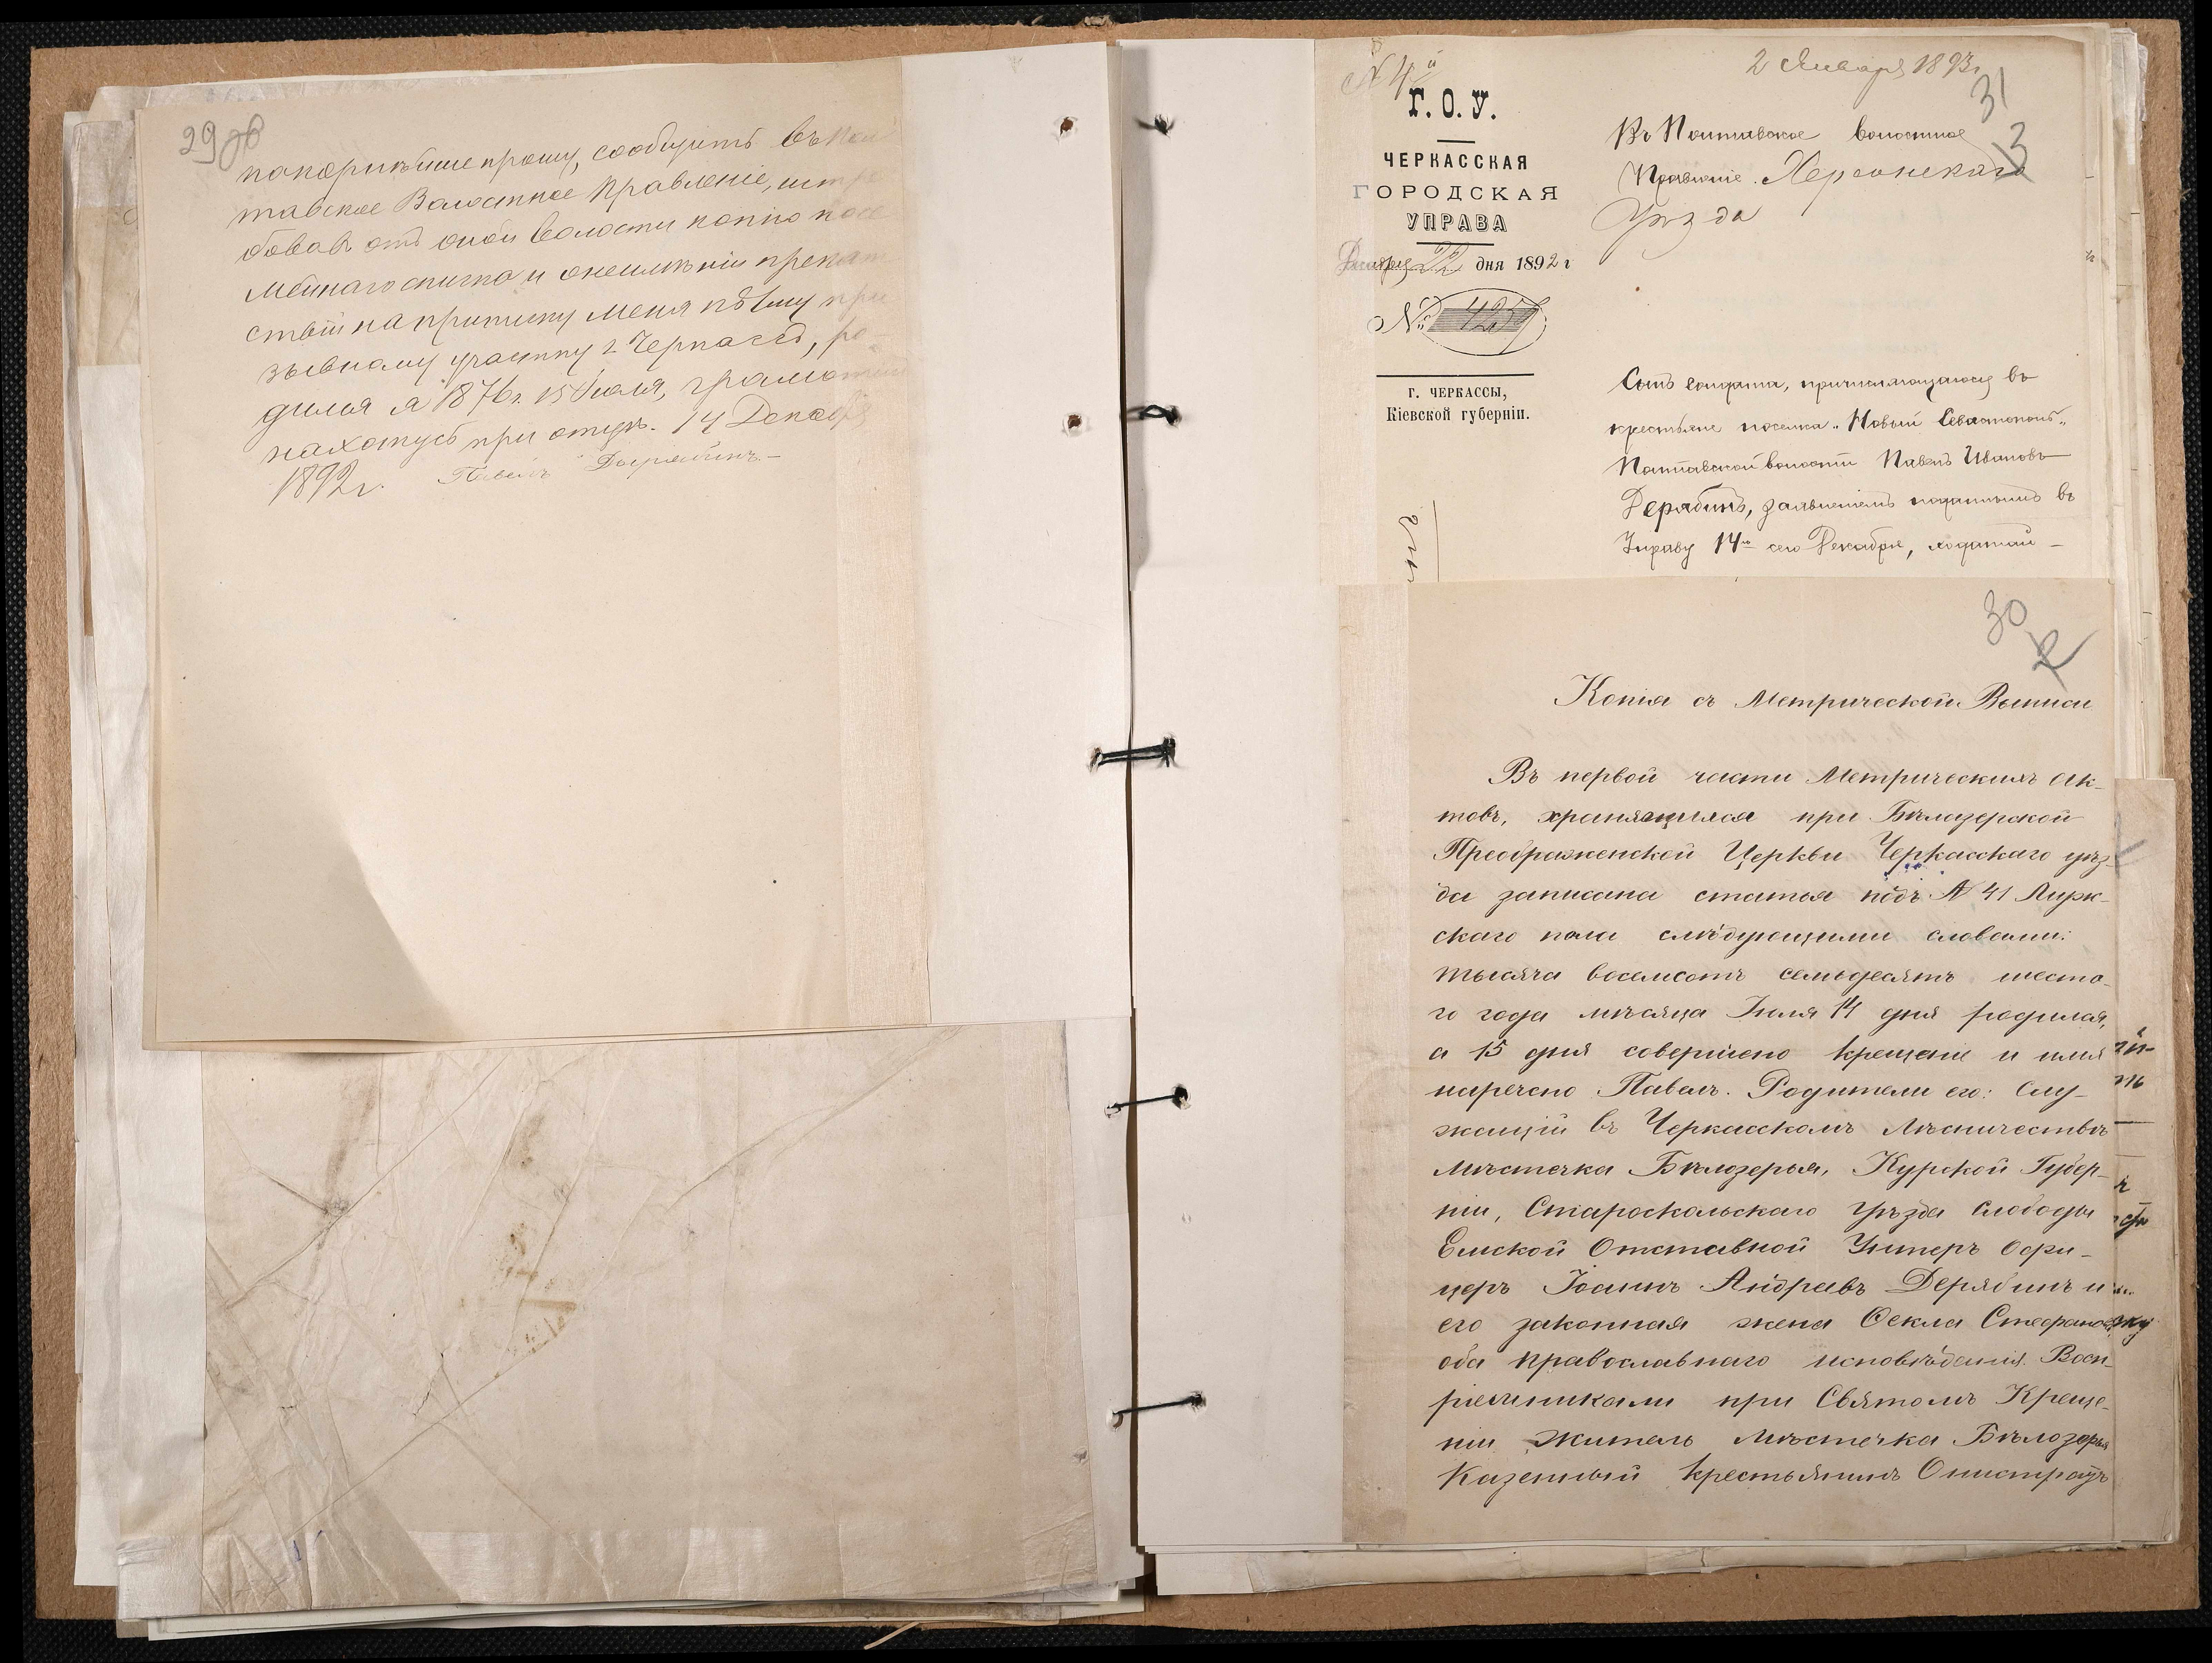 29 об
покорнѣйше прошу, сообщить въ Пол
тавское Волостное Правленіе, истре
бовавъ отъ оной волости копію посе
мейнаго списка и о неимѣніи препят
ствій на приписку меня къ 1му при
зывному участку г. Черкассъ, ро-
дился я 1876 г. 15 Іюля, грамотный
нахожусь при отцѣ. 14 Декабря
1892 г. Павелъ Дерябинъ.
2 Января 1893 г.
31
13
№ 4й
Г. О. У.
ЧЕРКАССКАЯ
ГОРОДСКАЯ
УПРАВА
Декабря 22 дня 1892 г
№ 4259
Г. ЧЕРКАССЫ,
Кіевской губерніи.
Въ Полтавское волостное
Правленіе. Херсонскаго
Уѣзда
Сынъ солдата, причисляющагося въ
крестьяне поселка „Новый Севастополь„
Полтавской волости Павелъ Ивановъ
Дерябинъ, заявленіемъ поданнымъ въ
Управу 14го сего Декабря, ходатай-
30
Копія съ Метрической Выписи
Въ первой части Метрическихъ Ак-
товъ, хранящихся при Бѣлозерской
Преображенской Церкви Черкасскаго уѣз-
да записана статья подъ № 41 Мужс-
скаго пола слѣдующими словами:
тысяча восемсотъ семьдесятъ шесто-
го года мѣсяца Іюля 14 дня родился,
а 15 дня совершено крещеніе и имя
наречено Павелъ. Родители его: Слу-
жащій въ Черкасскомъ Лѣсничествѣ
Мѣстечка Бѣлозерья, Курской Губер-
ніи, Староскольскаго Уѣзда Слободы
Отставной Унтеръ Офи-
церъ Іоаннъ Андреевъ Дерябинъ и
его законная жена Ѳекла Стефанов
оба православнаго исповѣданія. Восп-
ріемниками при Святомъ Креще-
ніи Житель Мѣстечка Бѣлозерья
Казенный крестьянинъ